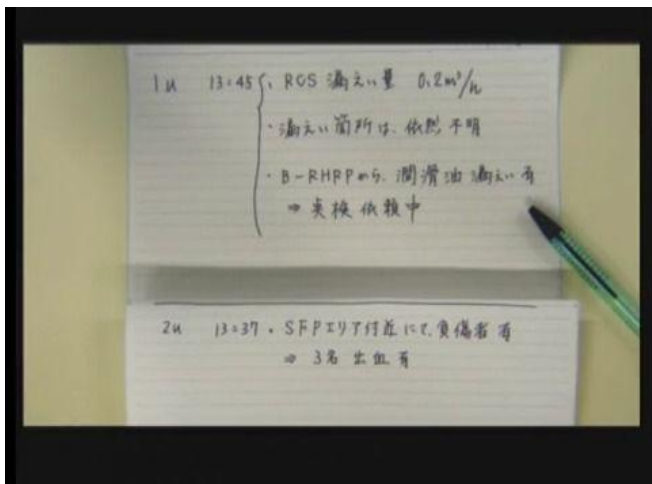 1u 13:45 ・RCS 漏えい量 0.2m³/h
・漏えい箇所は、依然不明
・B-RHRPから、潤滑油漏えい有
⇒ 点検依頼中
2u 13:37 ・SFPエリア付近にて、負傷者有
⇒ 3名出血有